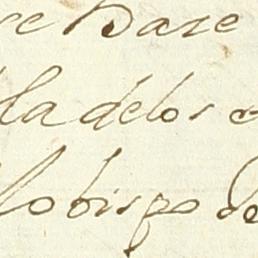 re Baze
la delos e
lobispo de